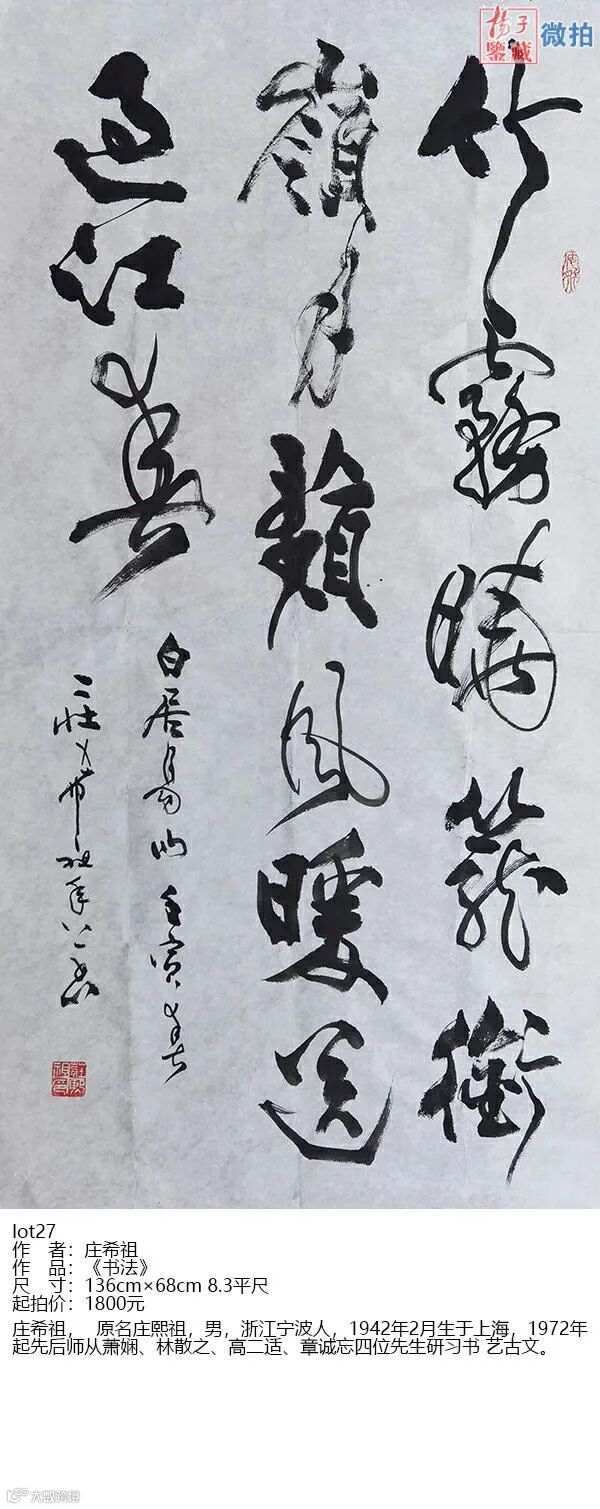 揚子
鑒藏
微拍
竹霧曉籠銜
嶺月蘋風暖送
過江春
白居易句 壬寅春
二莊希祖年八一書
莊熙祖印
lot27
作 者：庄希祖
作 品：《书法》
尺 寸：136cm×68cm 8.3平尺
起拍价：1800元
庄希祖， 原名庄熙祖，男，浙江宁波人，1942年2月生于上海，1972年
起先后师从萧娴、林散之、高二适、章诚忘四位先生研习书 艺古文。
大数跨境